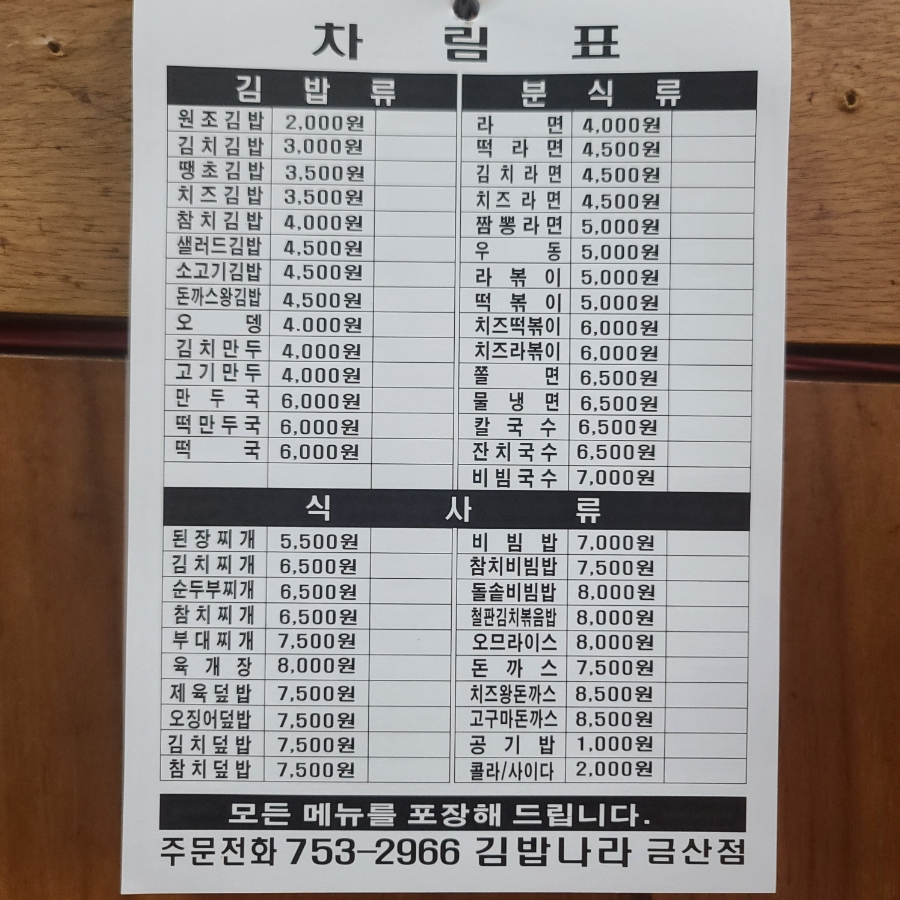 차림표
김밥류
원조김밥 2,000원
김치김밥 3,000원
땡초김밥 3,500원
치즈김밥 3,500원
참치김밥 4,000원
샐러드김밥 4,500원
소고기김밥 4,500원
돈까스왕김밥 4,500원
오뎅 4.000원
김치만두 4,000원
고기만두 4,000원
만두국 6,000원
떡만두국 6,000원
떡국 6,000원
분식류
라면 4,000원
떡라면 4,500원
김치라면 4,500원
치즈라면 4,500원
짬뽕라면 5,000원
우동 5,000원
라볶이 5,000원
떡볶이 5,000원
치즈떡볶이 6,000원
치즈라볶이 6,000원
쫄면 6,500원
물냉면 6,500원
칼국수 6,500원
잔치국수 6,500원
비빔국수 7,000원
식사류
된장찌개 5,500원
김치찌개 6,500원
순두부찌개 6,500원
참치찌개 6,500원
부대찌개 7,500원
육개장 8,000원
제육덮밥 7,500원
오징어덮밥 7,500원
김치덮밥 7,500원
참치덮밥 7,500원
비빔밥 7,000원
참치비빔밥 7,500원
돌솥비빔밥 8,000원
철판김치볶음밥 8,000원
오므라이스 8,000원
돈까스 7,500원
치즈왕돈까스 8,500원
고구마돈까스 8,500원
공기밥 1,000원
콜라/사이다 2,000원
모든 메뉴를 포장해 드립니다.
주문전화 753-2966 김밥나라 금산점